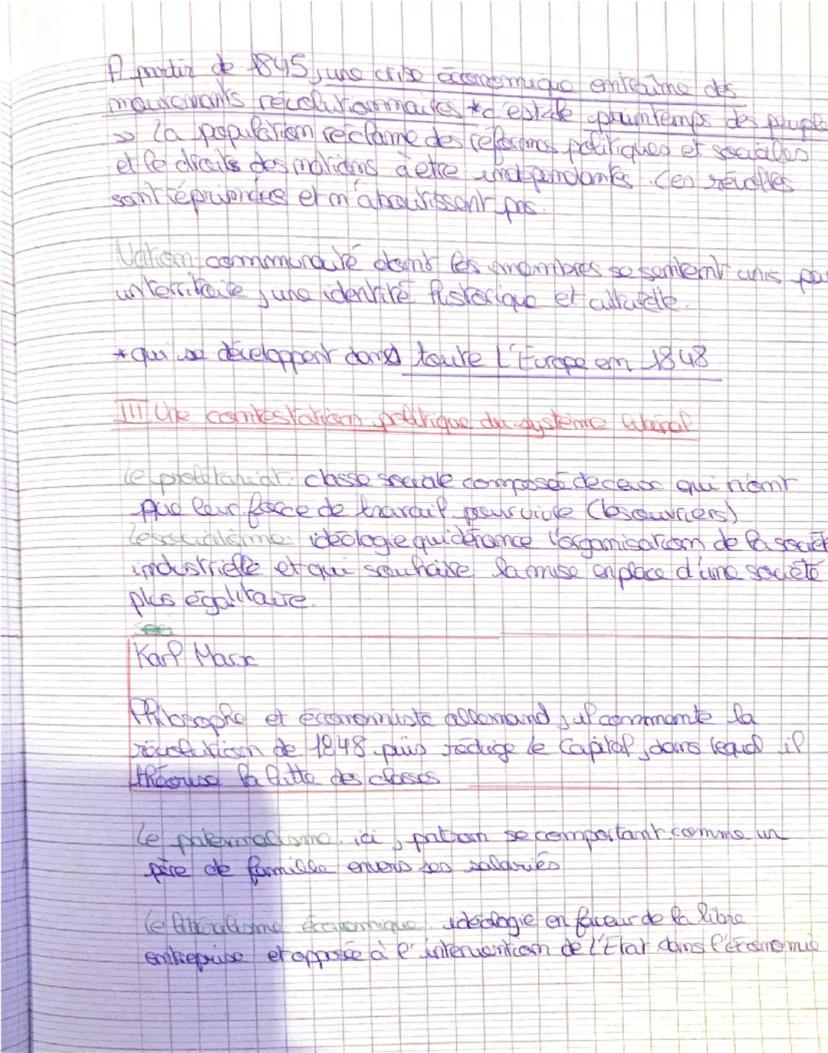 A partir de 1845, une crise économique entraîne des
mouvements révolutionnaires * c'est le printemps des peuple
=> la population réclame des réformes politiques et sociales
et le droits des nations à être indépendantes. Ces révoltes
sont réprimées et n'aboutissent pas.
Nation communauté dont les membres se sentent unis par
un territoire, une identité historique et culturelle.
* qui se développent dans toute l'Europe en 1848
III Une contestation politique du système libéral
Le prolétariat: classe sociale composée de ceux qui n'ont
que leur force de travail pour vivre (les ouvriers)
Le socialisme: idéologie qui dénonce l'organisation de la société
industrielle et qui souhaite la mise en place d'une société
plus égalitaire.
Karl Marx
Philosophe et économiste allemand, il commente la
révolution de 1848 puis rédige le Capital, dans lequel il
théorise la lutte des classes
Le paternalisme: ici, patron se comportant comme un
père de famille envers ses salariés
Le libéralisme économique: idéologie en faveur de la libre
entreprise et opposée à l'intervention de l'État dans l'économie